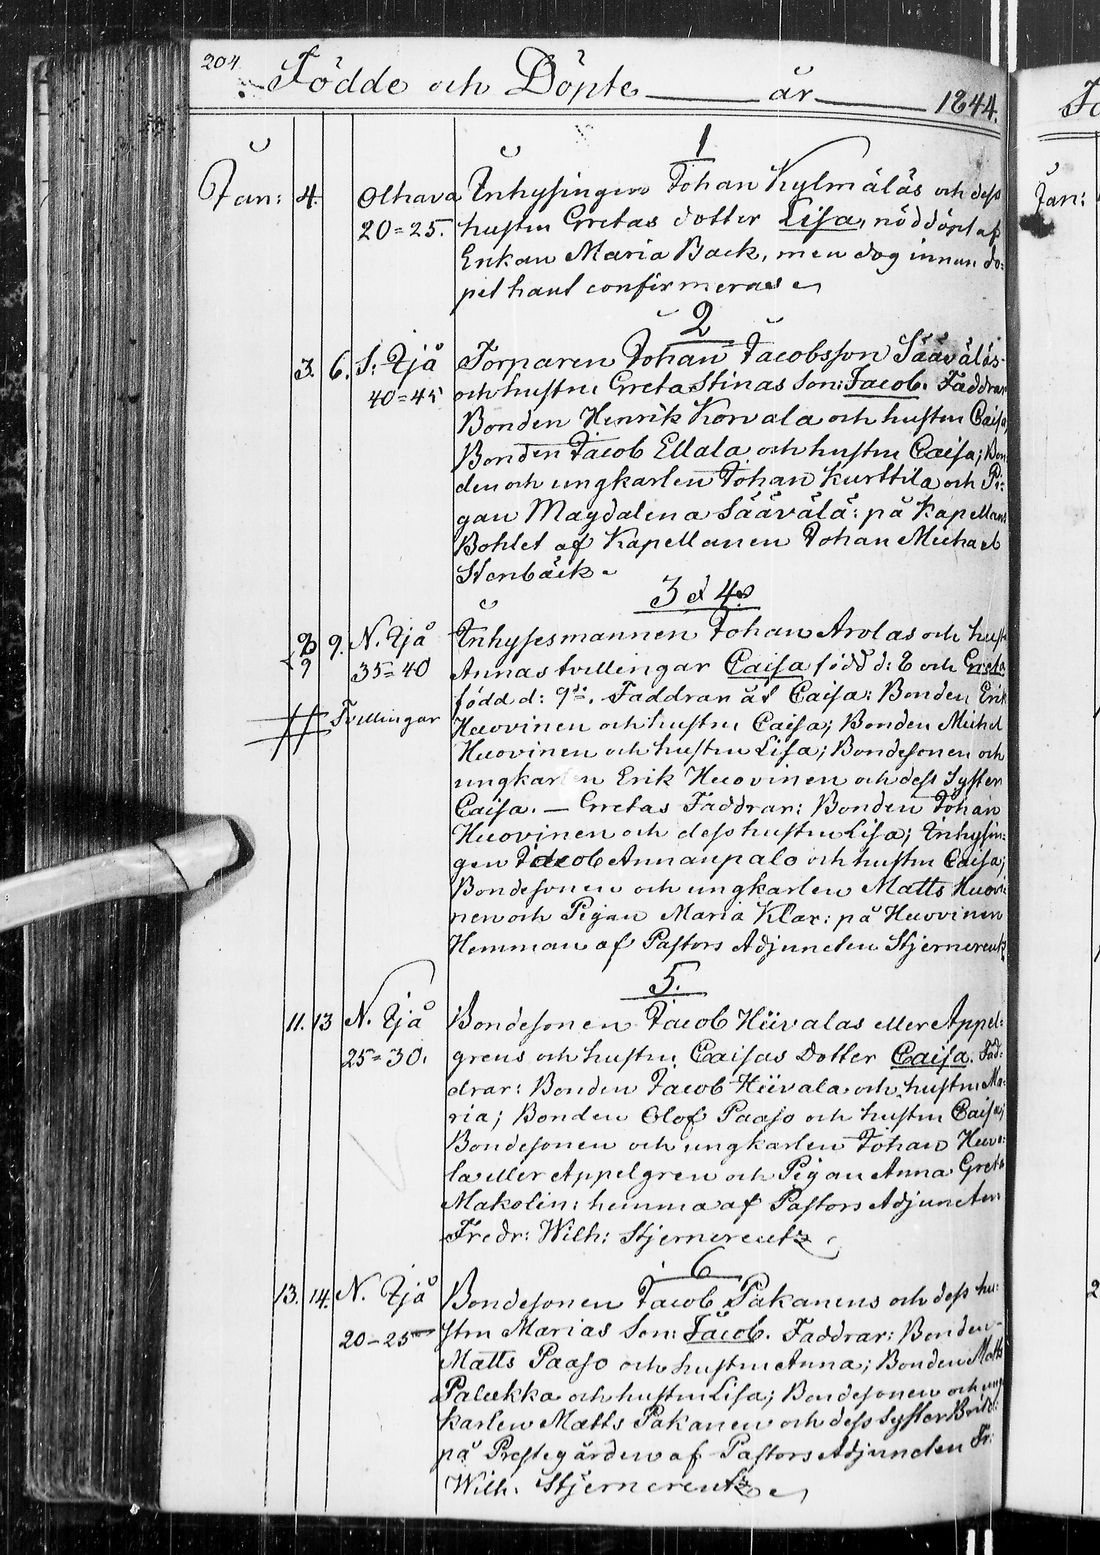 204
Födde och Döpte år 1844.
1
Jan: 4. Olhava Inhysingen Johan Kylmäläs och dess
20=25. hustru Gretas dotter Lisa, nöddöpt af
Enkan Maria Back, men dog innan do-
pet hant confirmeras
2
3. 6. S: Ijå Torparen Johan Jacobsson Sääväläs
40=45 och hustru Greta Stinas Son: Jacob. Faddrar
Bonden Henrik Korvala och hustru Caisa,
Bonden Jacob Ellala och hustru Caisa; Bon
den och ungkarlen Johan Kurttila och Pi:
gan Magdalena Säävälä: på Kapellans
Bohlet af Kapellanen Johan Michael
Stenbäck
3 et 4.
8 9 9. N. Ijå Inhysesmannen Johan Arolas och hust
35=40 Annas tvillingar Caisa född d: 8 och Greta
född d: 9de. Faddrar åt Caisa: Bonden Erik
Tvillingar Huovinen och hustru Caisa; Bonden Michel
Huovinen och hustru Lisa; Bondesonen och
ungkarlen Erik Huovinen och dess Syster
Caisa. — Gretas Faddrar: Bonden Johan
Huovinen och dess hustru Lisa; Inhysin:
gen Jacob Annanpalo och hustru Caisa;
Bondesonen och ungkarlen Matts Huovi:
nen och Pigan Maria Klar: på Huovinen
Hemman af Pastors Adjuncten Stjerncreutz
5.
11. 13 N. Ijå Bondesonen Jacob Hiivalas eller Appel:
25=30. grens och hustru Caisas Dotter Caisa. Fad:
drar: Bonden Jacob Hiivala och hustru Ma:
ria; Bonden Olof Paaso och hustru Caisa;
Bondesonen och ungkarlen Johan Hiiva:
la eller Appelgren och Pigan Anna Greta
Makolin: hemma af Pastors Adjuncten
Fredr: Wilh: Stjerncreutz
6
13. 14. N. Ijå Bondesonen Jacob Pakanens och dess hu:
20–25 stru Marias Son: Jacob. Faddrar: Bonden
Matts Paaso och hustru Anna; Bonden Matts
Palukka och hustru Lisa; Bondesonen och ung
karlen Matts Pakanen och dess Syster Brita:
på Prestegården af Pastors Adjuncten Fr:
Wilh. Stjerncreutz
Jan: